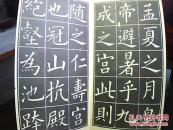 孟夏之月皇
帝避暑乎九
成之宫此則
随之仁壽宫
也冠山抗殿
絶壑為池跨